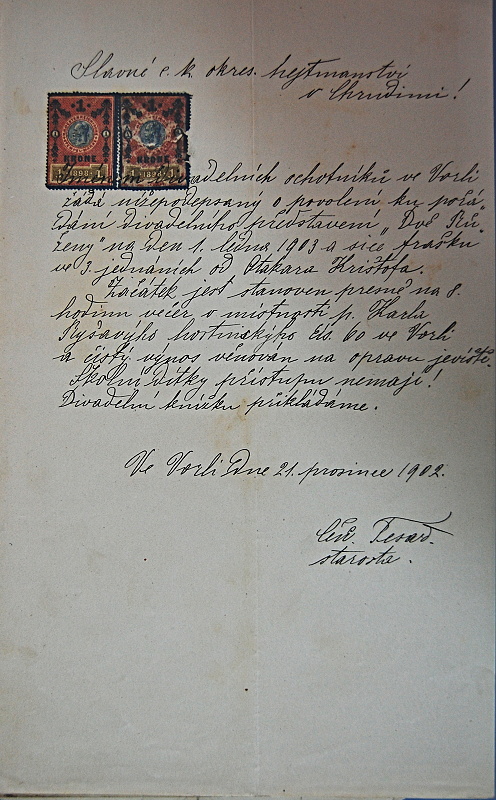 Slavné c. k. okres. hejtmanství
v Chrudimi!
1 1
KRONE KRONE
1 1898 1 1 1898 1
Jménem divadelních ochotníků ve Vorli
žádá nížepodepsaný o povolení ku pořá-
dání divadelního představení „Dvě Rů-
ženy" na den 1. ledna 1903 a sice frašku
ve 3. jednáních od Otakara Krištofa.
Začátek jest stanoven přesně na 8.
hodinu večer v místnosti p. Karla
Ryšavýho hostinskýho čís. 60 ve Vorli
a čistý výnos věnován na opravu jeviště.
Školní dítky přístupu nemají!
Divadelní knížku přikládáme.
Ve Vorli dne 21. prosince 1902.
Tesař.
starosta.